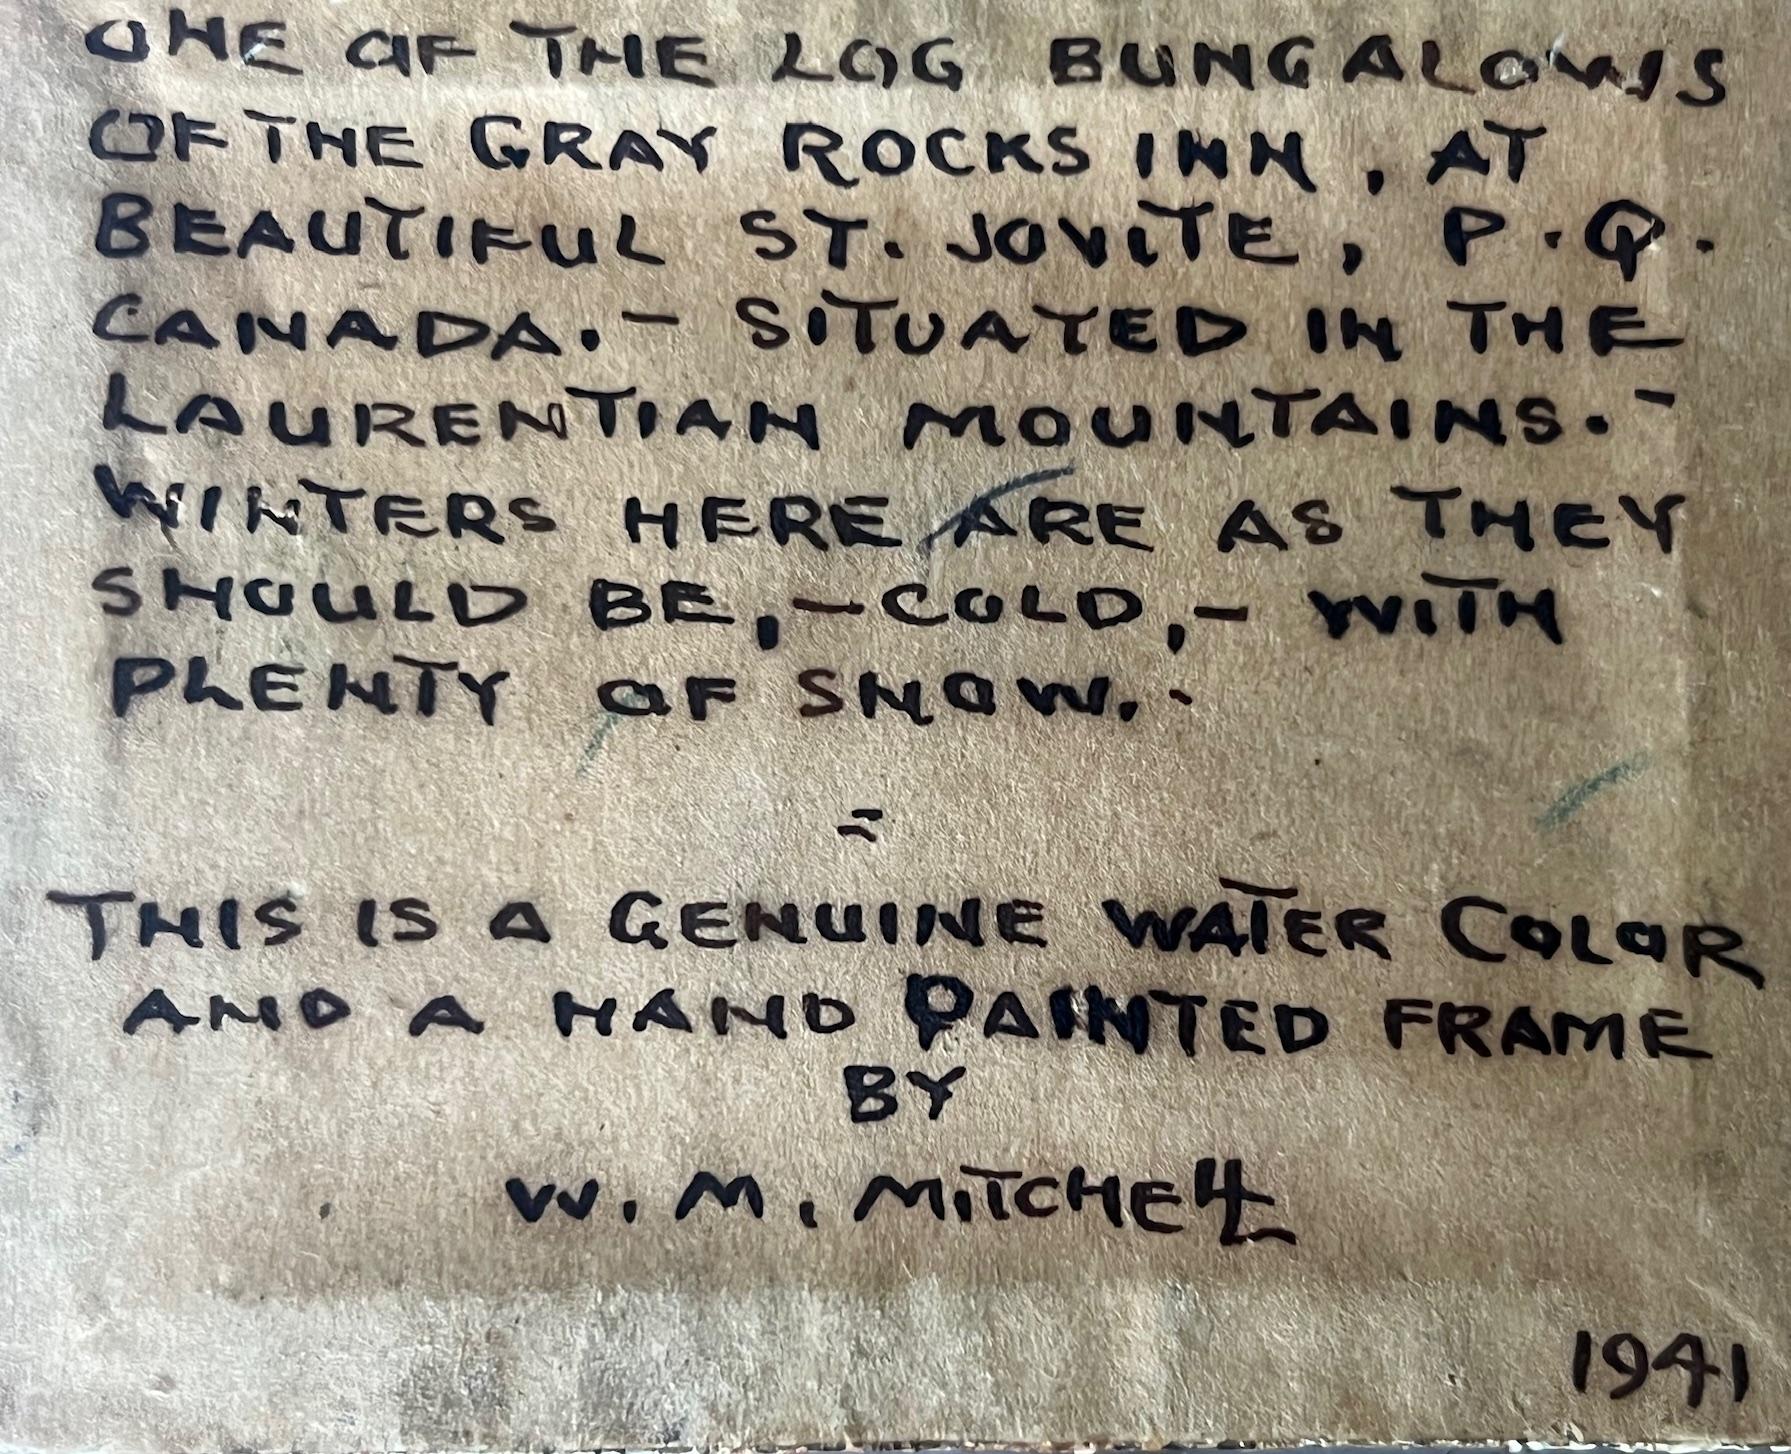 ONE OF THE LOG BUNGALOWS
OF THE GRAY ROCKS INN, AT
BEAUTIFUL ST. JOVITE, P.Q.
CANADA.- SITUATED IN THE
LAURENTIAN MOUNTAINS.-
WINTERS HERE ARE AS THEY
SHOULD BE,-COLD,- WITH
PLENTY OF SNOW.-
=
THIS IS A GENUINE WATER COLOR
AND A HAND PAINTED FRAME
BY
W. M. MITCHELL
1941